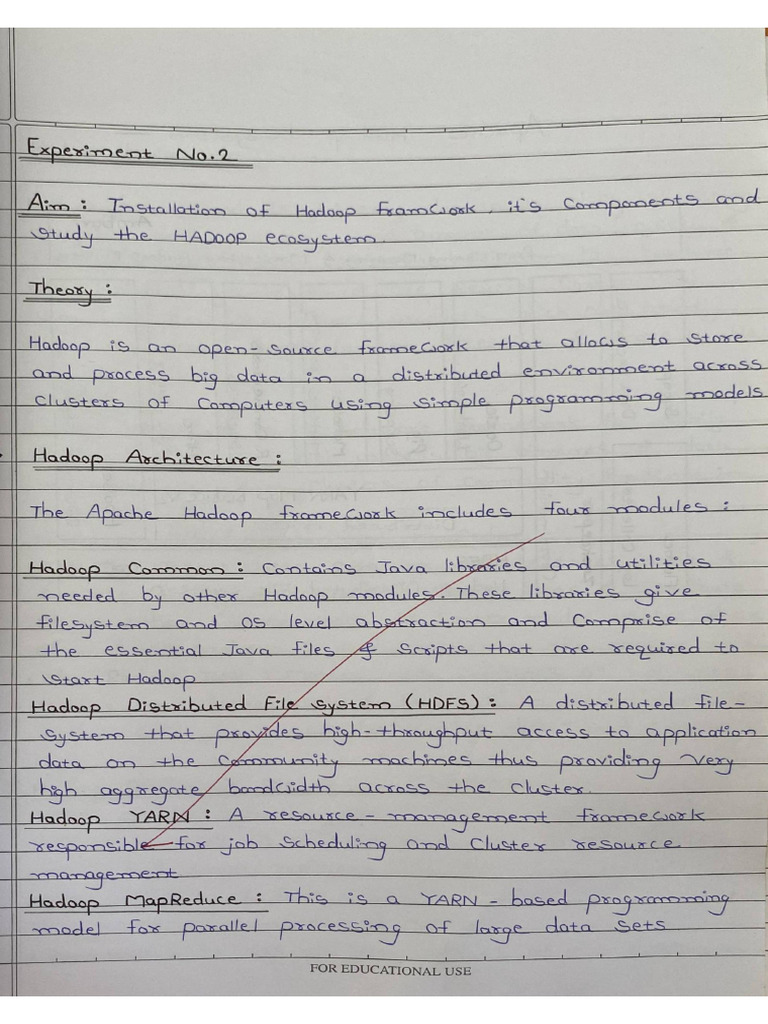 Experiment No.2
Aim : Installation of Hadoop framwork, it's Components and
study the HADOOP ecosystem.
Theory :
Hadoop is an open-source framework that allows to store
and process big data in a distributed environment across
clusters of Computers using simple programming models
Hadoop Architecture :
The Apache Hadoop framework includes four modules :
Hadoop Common : Contains Java libraries and utilities
needed by other Hadoop modules. These libraries give
filesystem and OS level abstraction and Comprise of
the essential Java files & Scripts that are required to
start Hadoop
Hadoop Distributed File System (HDFS) : A distributed file-
system that provides high-throughput access to application
data on the Community machines thus providing very
high aggregate bandwidth across the Cluster.
Hadoop YARN : A resource - management framework
responsible for job Scheduling and Cluster resource
management
Hadoop MapReduce : This is a YARN - based programming
model for parallel processing of large data sets
FOR EDUCATIONAL USE